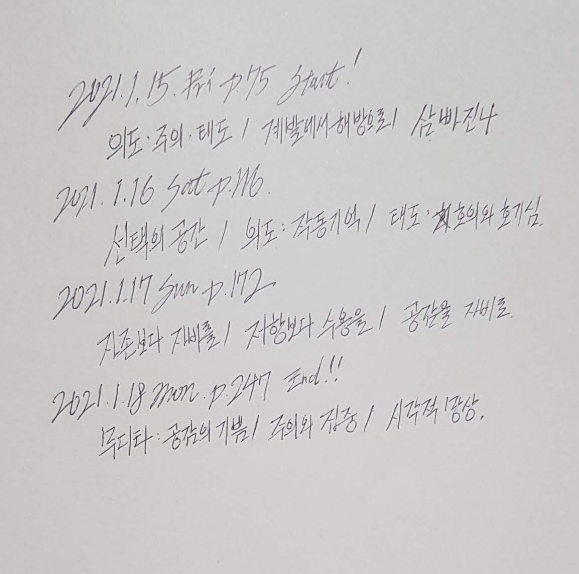 2021.1.15. Fri p.75 Start!
의도·주의·태도 / 계발에서 해방으로 / 삼빠진나
2021.1.16 Sat p.116.
선택의 공간 / 의도: 작동기억 / 태도: 호의와 호기심
2021.1.17 Sun p.172
자존보다 자비를 / 저항보다 수용을 / 공감을 자비로.
2021.1.18 mon. p.247 End!!
무디타: 공감의 기쁨 / 주의와 집중 / 시각적 명상.